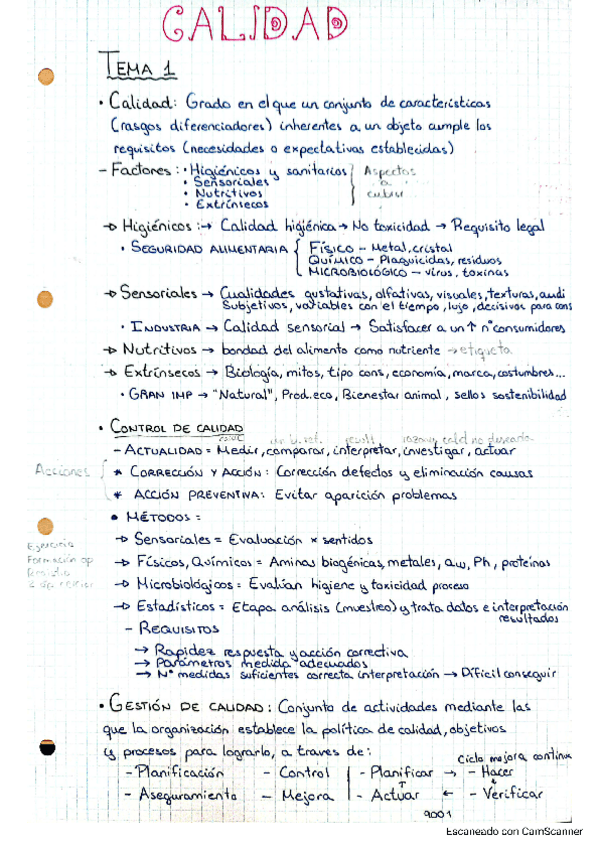 CALIDAD
TEMA 1
• Calidad: Grado en el que un conjunto de características
(rasgos diferenciadores) inherentes a un objeto cumple los
requisitos (necesidades o expectativas establecidas)
- Factores: • Higiénicos y sanitarios } Aspectos
• Sensoriales a
• Nutritivos cubrir
• Extrínsecos
→ Higiénicos: → Calidad higiénica → No toxicidad → Requisito legal
• SEGURIDAD ALIMENTARIA { FÍSICO - Metal, cristal
QUÍMICO - Plaguicidas, residuos
MICROBIOLÓGICO - virus, toxinas
→ Sensoriales → Cualidades gustativas, olfativas, visuales, texturas, audi
Subjetivos, variables con el tiempo, lujo, decisivos para cons
• INDUSTRIA → Calidad sensorial → Satisfacer a un ↑ nº consumidores
→ Nutritivos → bondad del alimento como nutriente → etiqueta
→ Extrínsecos → Biología, mitos, tipo cons, economía, marca, costumbres...
• GRAN IMP → "Natural", Prod. eco, Bienestar animal, sellos sostenibilidad
• CONTROL DE CALIDAD
- ACTUALIDAD = Medir, comparar, interpretar, investigar, actuar
Acciones { * CORRECCIÓN Y ACCIÓN: Corrección defectos y eliminación causas
* ACCIÓN PREVENTIVA: Evitar aparición problemas
• MÉTODOS =
→ Sensoriales = Evaluación x sentidos
→ Físicos, Químicos = Aminas biogénicas, metales, aw, Ph, proteínas
→ Microbiológicos = Evalúan higiene y toxicidad proceso
→ Estadísticos = Etapa análisis (muestreo) y trata datos e interpretación
resultados
Formación op
- REQUISITOS
→ Rapidez respuesta y acción correctiva
→ Parámetros medida adecuados
→ Nº medidas suficientes correcta interpretación → Díficil conseguir
• GESTIÓN DE CALIDAD: Conjunto de actividades mediante las
que la organización establece la política de calidad, objetivos
y procesos para lograrlo, a traves de:
Ciclo mejora continua
- Planificación - Control | - Planificar → - Hacer
- Aseguramiento - Mejora | - Actuar ← - Verificar
9001
Escaneado con CamScanner